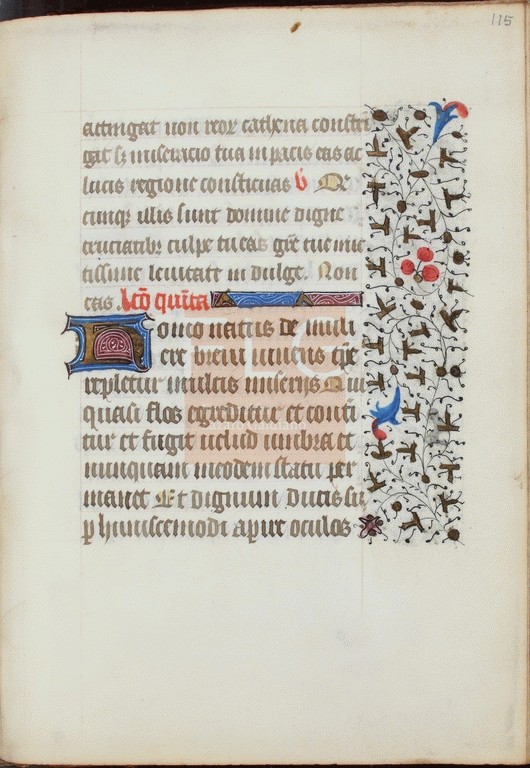 115
attingat non reor cathena constri
gat sz miseracio tua in pacis eas ac
lucis regione constituas v̄ Qe
cumqz illis sunt domine digne
cruciatibz culpe tu eas grē tue mi
tissime lenitate in dulge. Non
eas. lcō quīta
Homo natus de muli
ere breui uiuens tpē
repletur multis miserijs Qui
quasi flos egreditur et conti
tur et fugit uelud umbra et
nunquam in eodem statu per
manet Et dignum ducis su
p huiuscemodi apire oculos